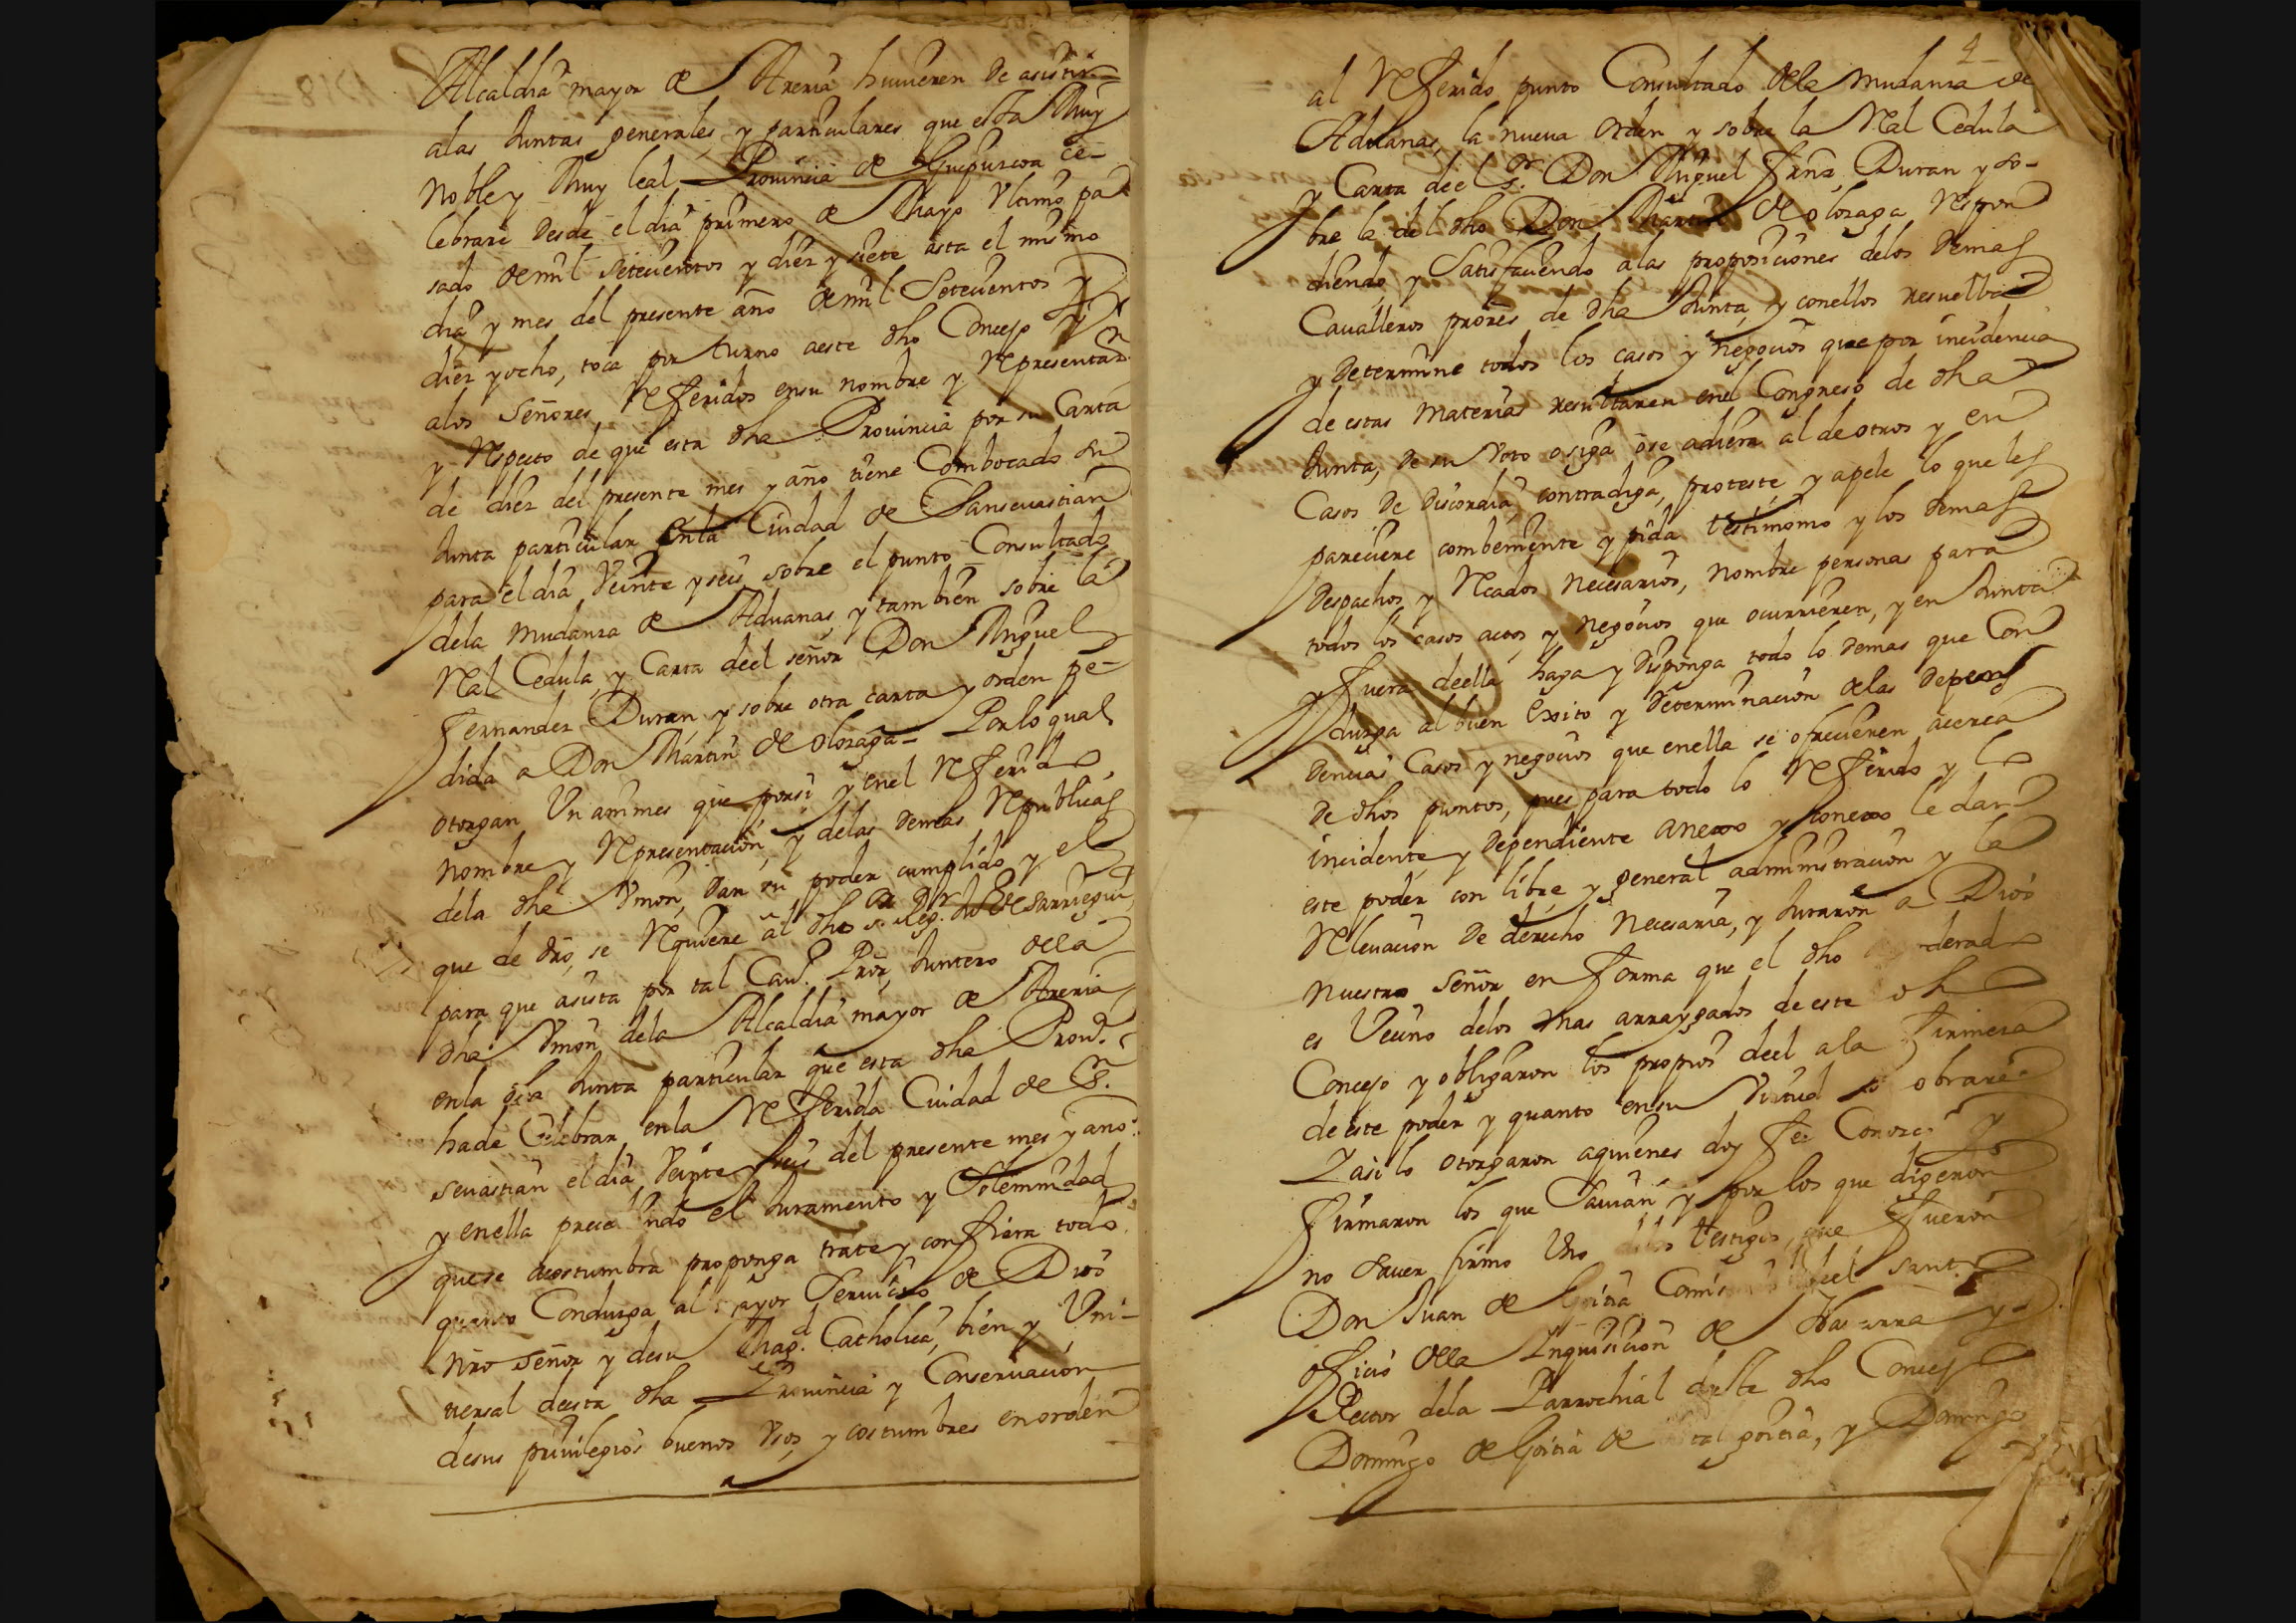 Alcaldia mayor de Areria huuieren de asistir
alas Juntas generales y particulares que esta Muy
Noble y Muy leal Prouincia de Guipuzcoa ce-
lebrare desde el dia primero de Mayo Vltimo pa
sado de mil setecientos y diez y siete asta el mismo
dia y mes del presente año de mil Setecientos y
diez y ocho, toca por turno a este dho Concejo y
alos señores Referidos en su nombre y Representaz.on
y Respecto de que esta dha Prouincia por su Carta
de diez del presente mes y año tiene Combocado su
Junta particular en la Ciudad de Sanseuastian
para el dia Veinte y seis sobre el punto Consultado
dela mudanza de Aduanas, y tambien sobre la
Ral Cedula, y Carta deel señor Don Miguel
Fernandez Duran y sobre otra carta y orden pe-
dida a Don Martin de olozaga - Por lo qual
otorgan Vnanimes que por si y en el Referido
nombre y Representacion, y delas demas Republicas
dela dha Vnion, dan su poder cumplido y el
que de dro, se Requiere al dho s.r Reg.r de sarriegui
para que asista por tal Cau.o Pror, Juntero della
dha Vnion dela Alcaldia mayor de Areria
en la dha Junta particular que esta dha Prou.a
hade Celebrar en la Referida Ciudad de S.n
seuastian el dia Veinte y seis del presente mes y año
y en ella precediendo el Juramento y Solemnidad
que se acostumbra proponga trate y confiera todo
quanto Conduzga al mayor Seruicio de Dios
nro señor y desu Mag.d Catholica, bien y Vni-
uersal deesta dha Prouincia y Conseruacion
desus priuilegios buenos Vsos, y costumbres en orden
4
al Referido punto Consultado dela mudanza de
Aduanas, la nueua orden y sobre la Ral Cedula
y Carta deel S.r Don Miguel Frnz Duran y so-
bre la del dho Don Martin de olozaga, Respon
diendo, y Satisfaciendo alas proposiciones delos demas
Caualleros prores de dha Junta, y con ellos resuelba
y determine todos los casos y negocios que por incidencia
de estas materias resultaren en el Congreso de dha
Junta, de su Voto o siga ose adiera al de otros y en
Casos de discordia, contradiga, proteste, y apele lo que les
pareciere combeniente y pida testimonio y los demas
despachos y Recados necesarios, nombre personas para
todos los casos actos, y negocios que ocurrieren, y en Junta
y fuera deella haga y disponga todo lo demas que Con
duzga al buen exito y determinacion delas depen
dencias Casos y negocios que en ella se ofrecieren acerca
de dhos puntos, pues para todo lo Referido y lo
incidente, y dependiente anexo y conexo le dan
este poder con libre, y general administracion y la
Releuacion de derecho necesaria, y Juraron a Dios
nuestro señor en forma que el dho derado
es Vecino delos mas arraygados de este dho
Concejo y obligaron los propios deel ala firmeza
de este poder y quanto en su Virtud se obrare
Y asi lo otorgaron aquienes doy fee Conozco y
firmaron los que Sauian y por los que digeron
no sauer firmo Vno delos testigos, que fueron
Don Juan de Goitia deel santo
oficio dela Inquisicion de Nauarra y
Rector dela Parrochial deste dho Concejo
Domingo de Goitia de goitia, y Domingo